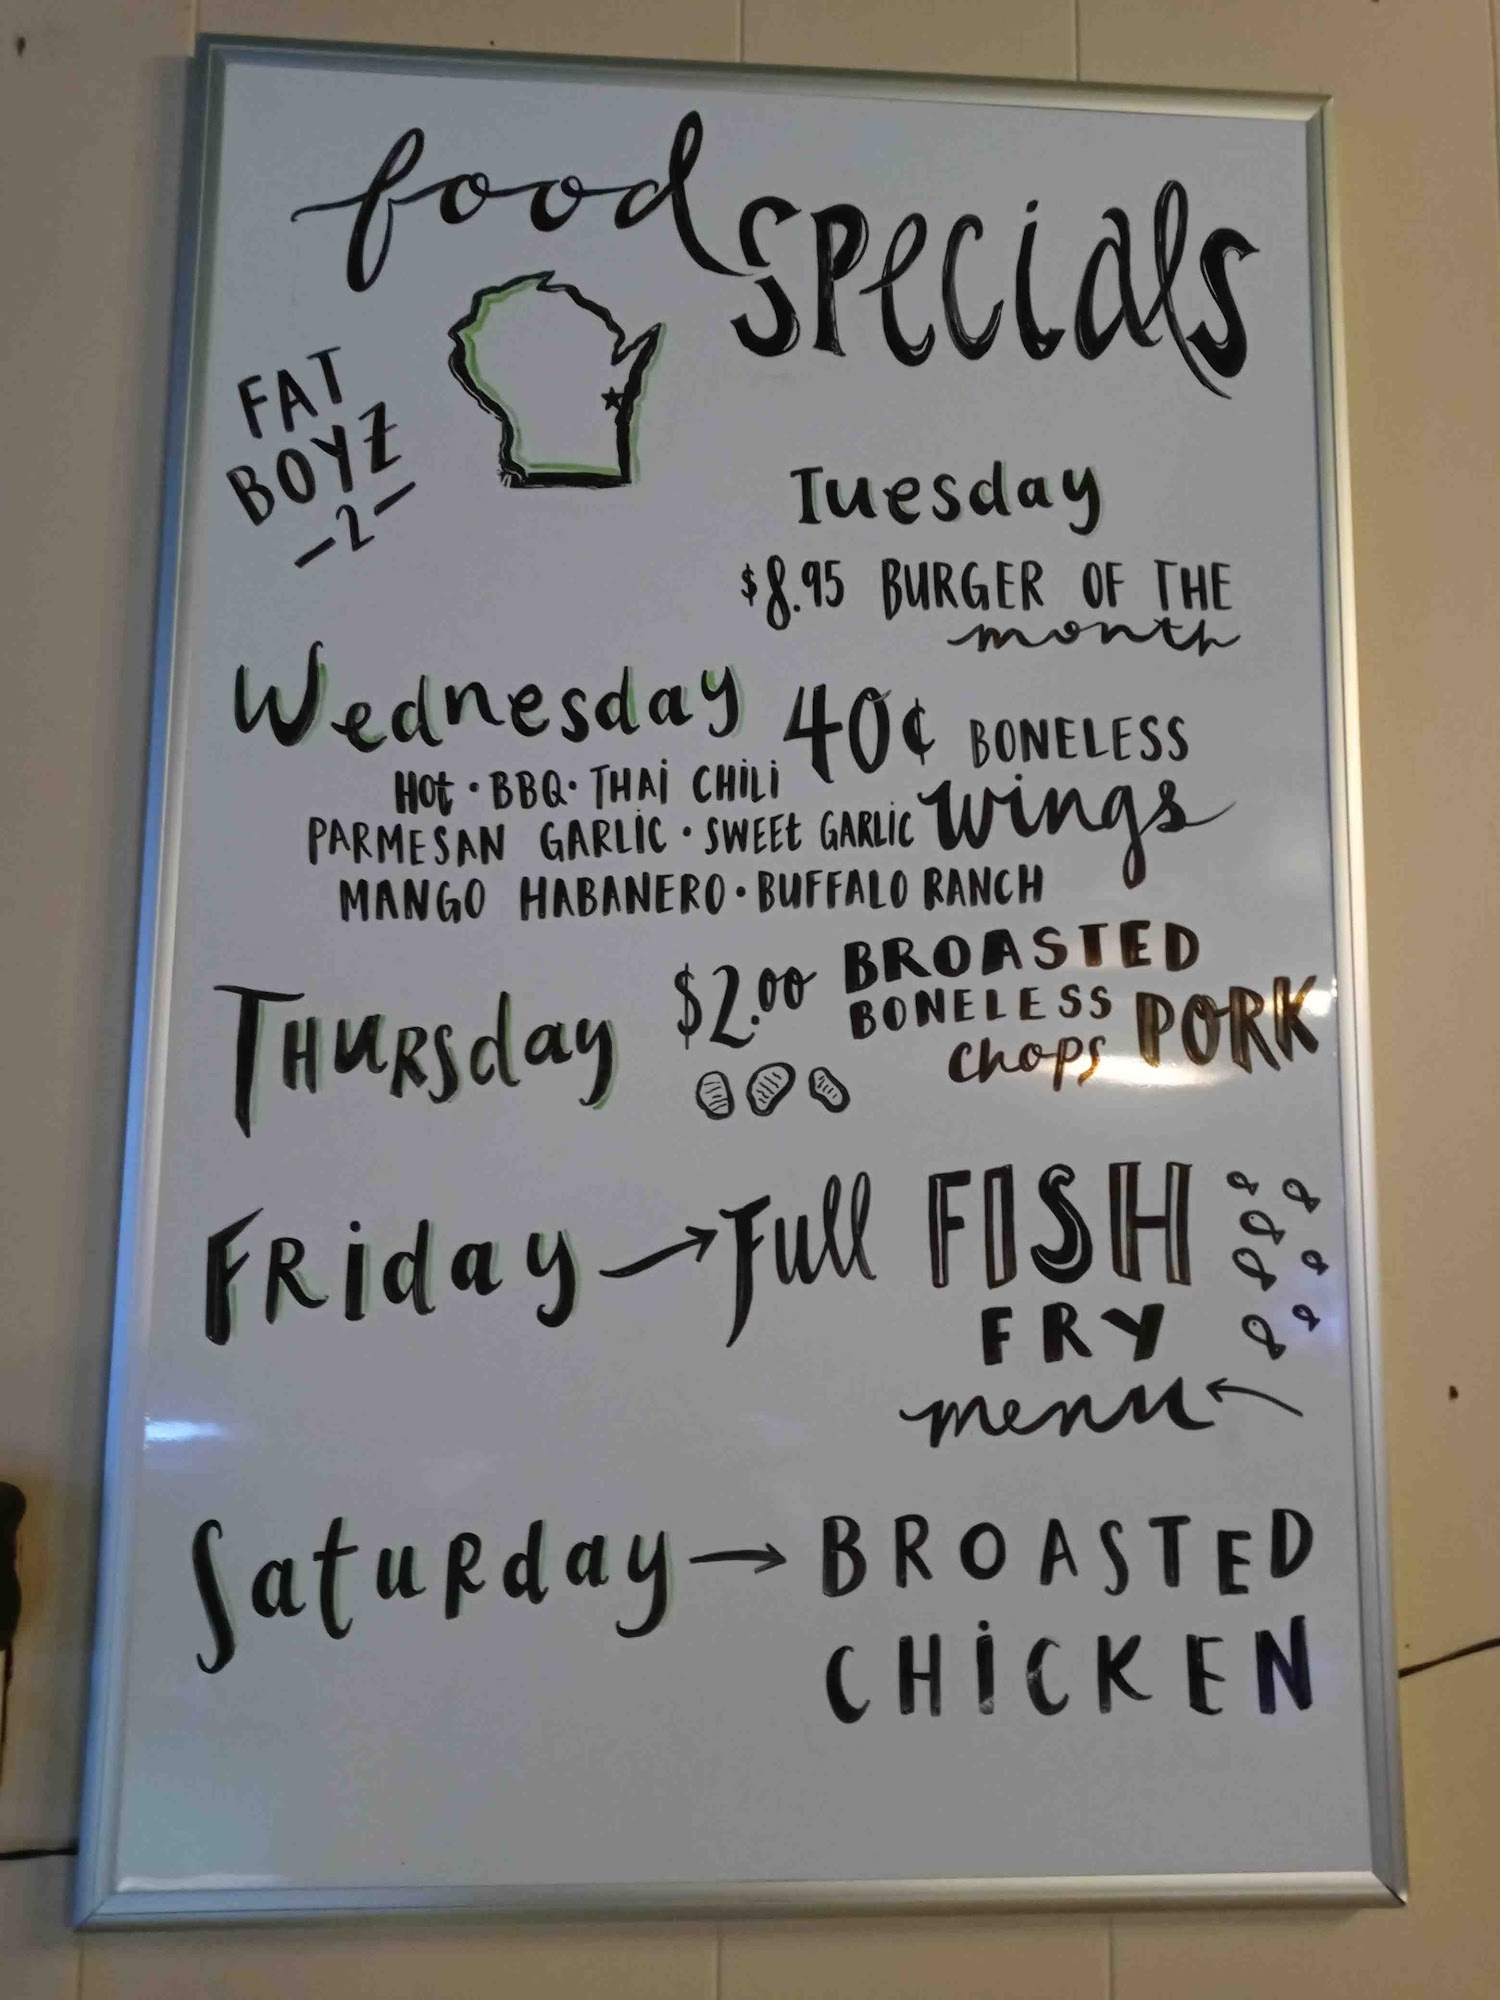 food SPecials
FAT
BOYZ
-2-
Tuesday
$8.95 BURGER OF THE
month
Wednesday 40¢ BONELESS
wings
Hot · BBQ · THAi CHiLi
PARMESAN GARLiC · SWEEt GARLiC
MANGO HABANERO · BUFFALO RANCH
THURSday $2.00 BROASTED
BONELESS PORK
chops
FRiday → Full FISH
FRY
menu ←
SatuRday → BROASTED
CHiCKEN